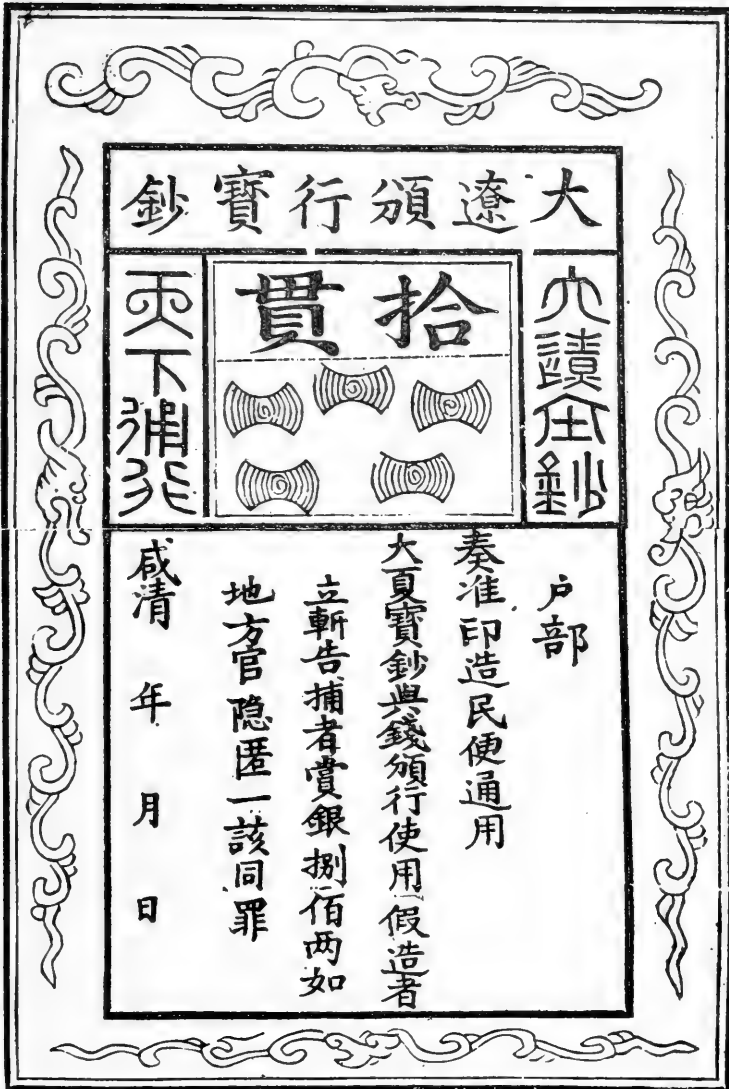 大遼頒行寶鈔
拾貫
天下通行
戶部
奏准印造民使通用
大夏寶鈔與錢頒行使用假造者
立斬告捕者賞銀捌佰两如
地方官隐匿一該同罪
咸清 年 月 日